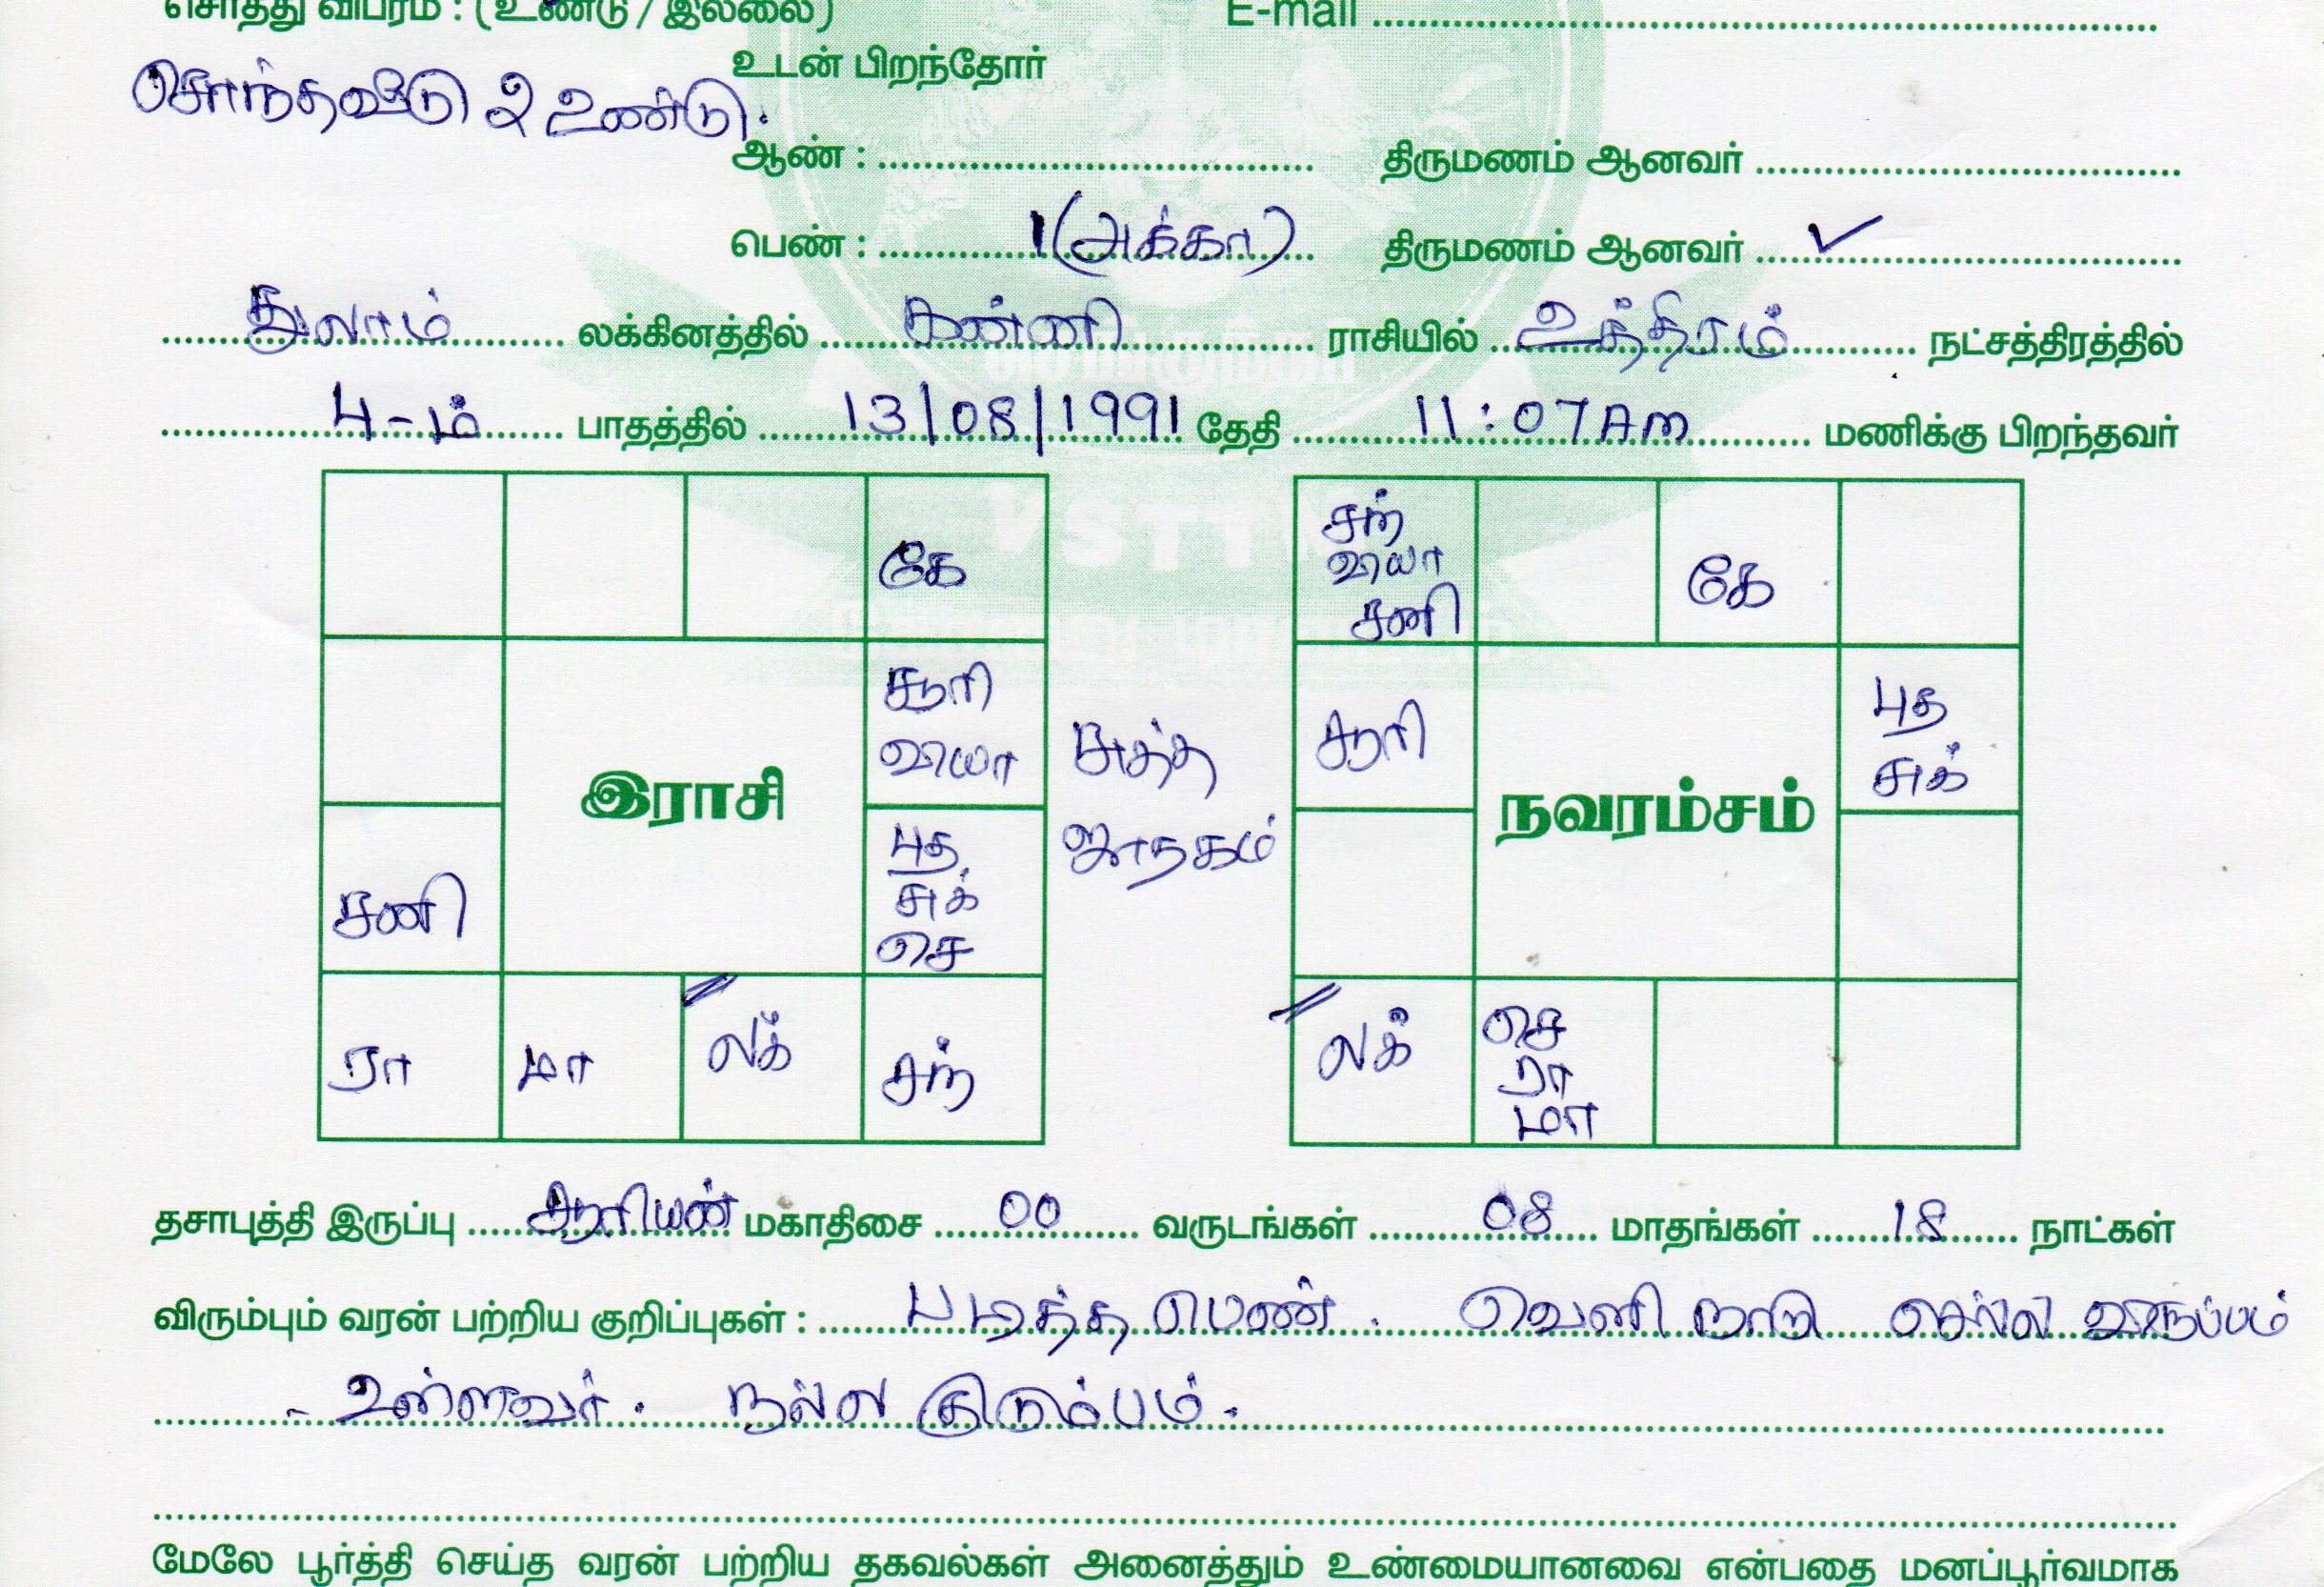 சொத்து விபரம் : (உண்டு / இல்லை) E-mail
உடன் பிறந்தோர்
சொந்தவீடு 2 உண்டு.
ஆண் : திருமணம் ஆனவர்
பெண் : 1 (அக்கா) திருமணம் ஆனவர் ✓
துலாம் லக்கினத்தில் கன்னி ராசியில் உத்திரம் நட்சத்திரத்தில்
4-ம் பாதத்தில் 13/08/1991 தேதி 11:07 Am மணிக்கு பிறந்தவர்
கே
சூரி
வியா
இராசி
சனி
புத
சுக்
செ
ரா மா லக் சந்
சுத்த
ஜாதகம்
சந்
வியா
சனி
கே
சூரி
நவரம்சம்
புத
சுக்
லக்
செ
ரா
மா
VSTT
தசாபுத்தி இருப்பு சூரியன் மகாதிசை 00 வருடங்கள் 08 மாதங்கள் 18 நாட்கள்
விரும்பும் வரன் பற்றிய குறிப்புகள் : படித்த பெண். வெளி நாடு செல்ல விருப்பம்
- உள்ளவர். நல்ல குடும்பம்.
மேலே பூர்த்தி செய்த வரன் பற்றிய தகவல்கள் அனைத்தும் உண்மையானவை என்பதை மனப்பூர்வமாக